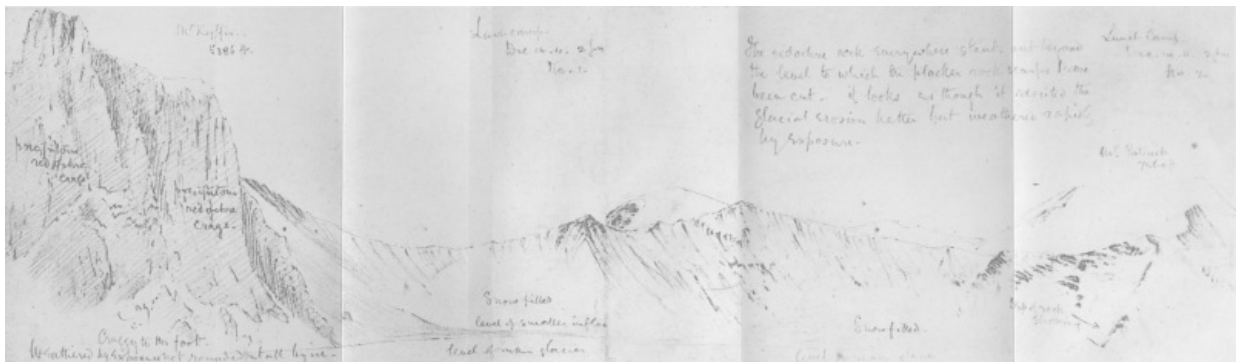 Mt Kyffin.
5296 ft.
Lunch camp.
Dec. 10. 11. 2 pm
No. 1.
The red ochre rock everywhere stands out beyond
the level to which the blacker rock scarps have
been cut - it looks as though it resists the
glacial erosion better but weathers rapidly
by exposure.
Lunch Camp
2 pm
No 2.
Mt. Patrick
precipitous
red ochre
crags
precipitous
red ochre
crags.
Craggy to the foot.
Weathered by exposure not rounded at all by ice.
Snow filled
level of smaller
level of main glacier
Snow filled.
level of main